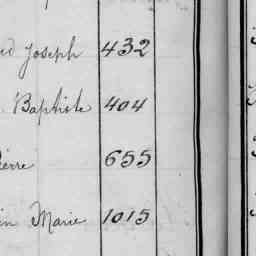 Joseph 432
Baptiste 404
655
Marie 1015